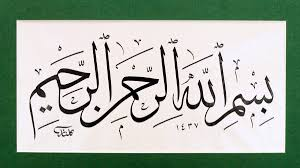 بِسْمِ اللهِ الرَّحْمٰنِ الرَّحِيمِ
١٤٣٧